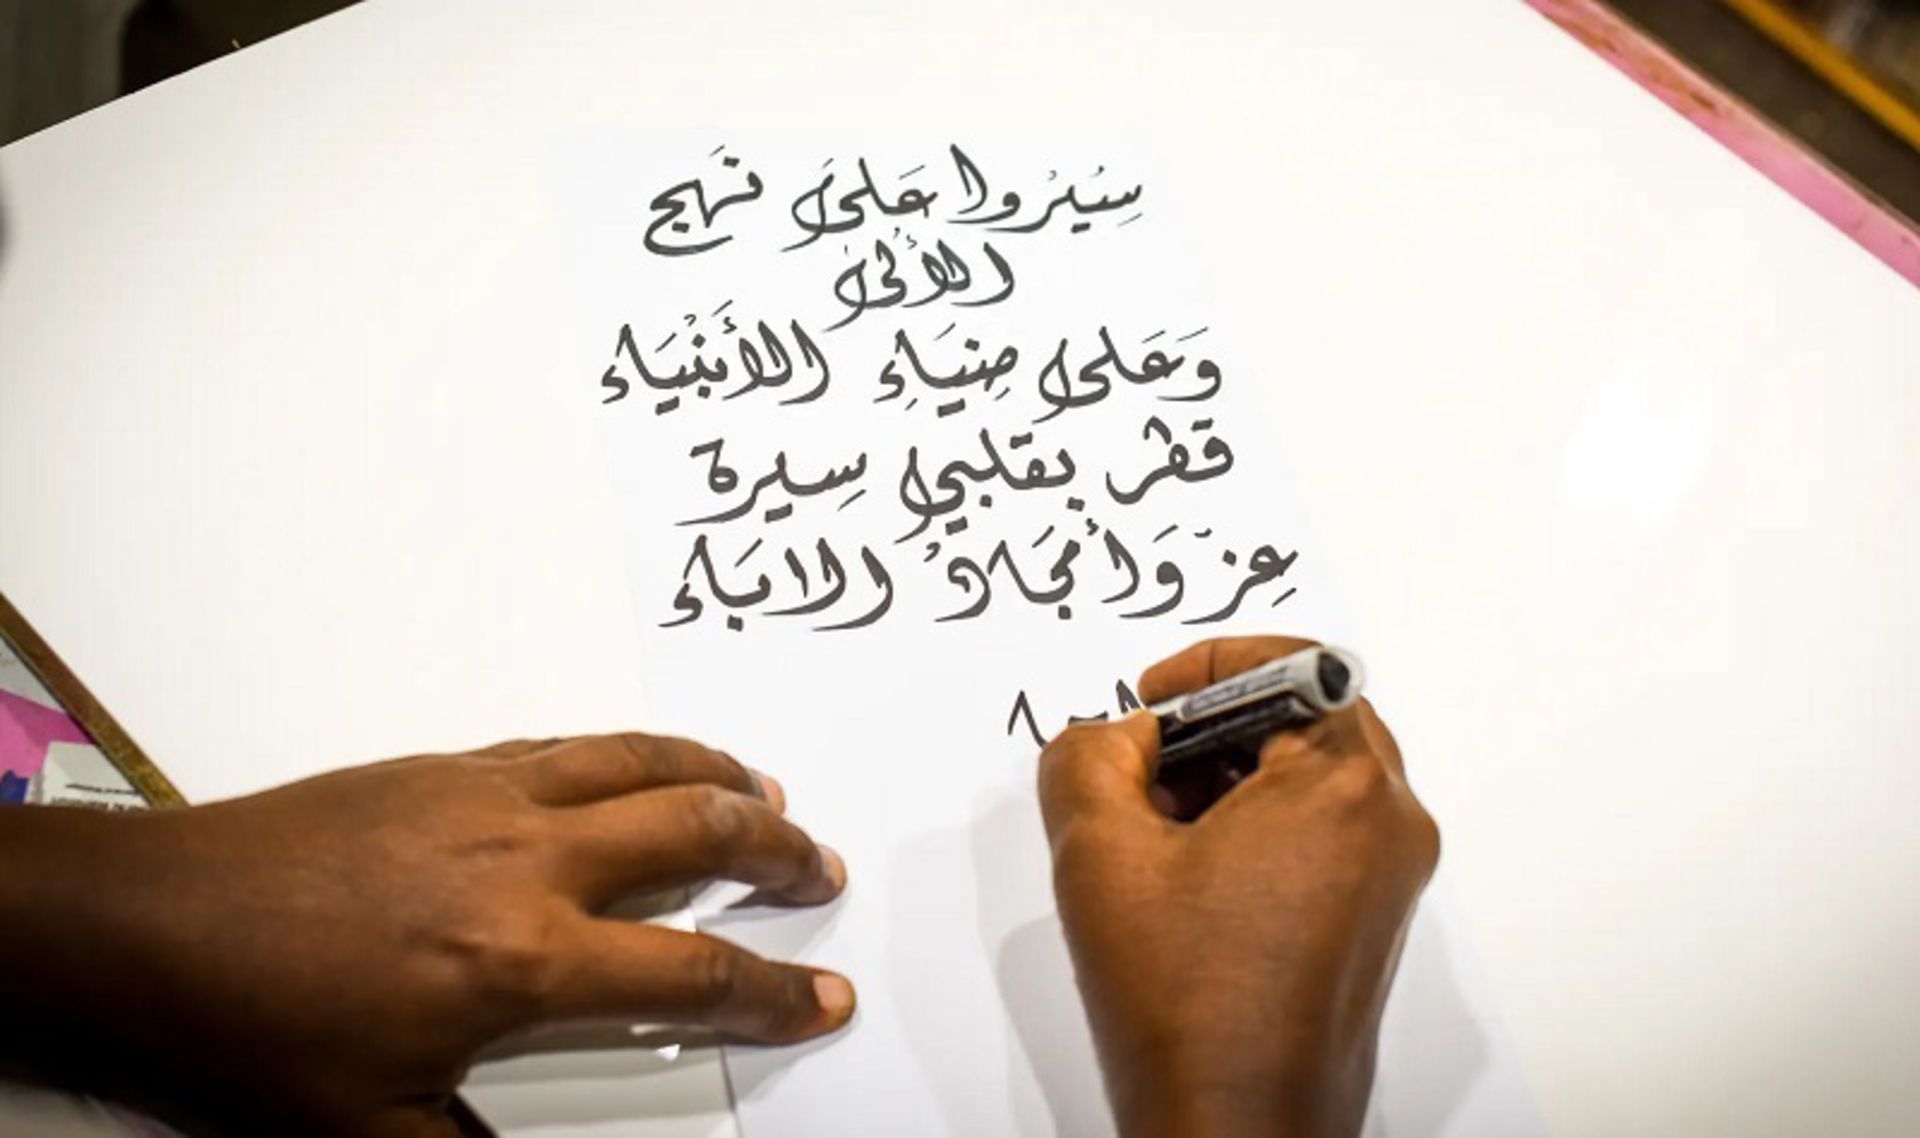 سِيُرُوا عَلَى نَهج
الأُلَى
وَعَلى ضِيَاءِ الأَنْبيَاء
قطر بقلبي سِيرة
عِزّ وَأمجَادُ الابَاء